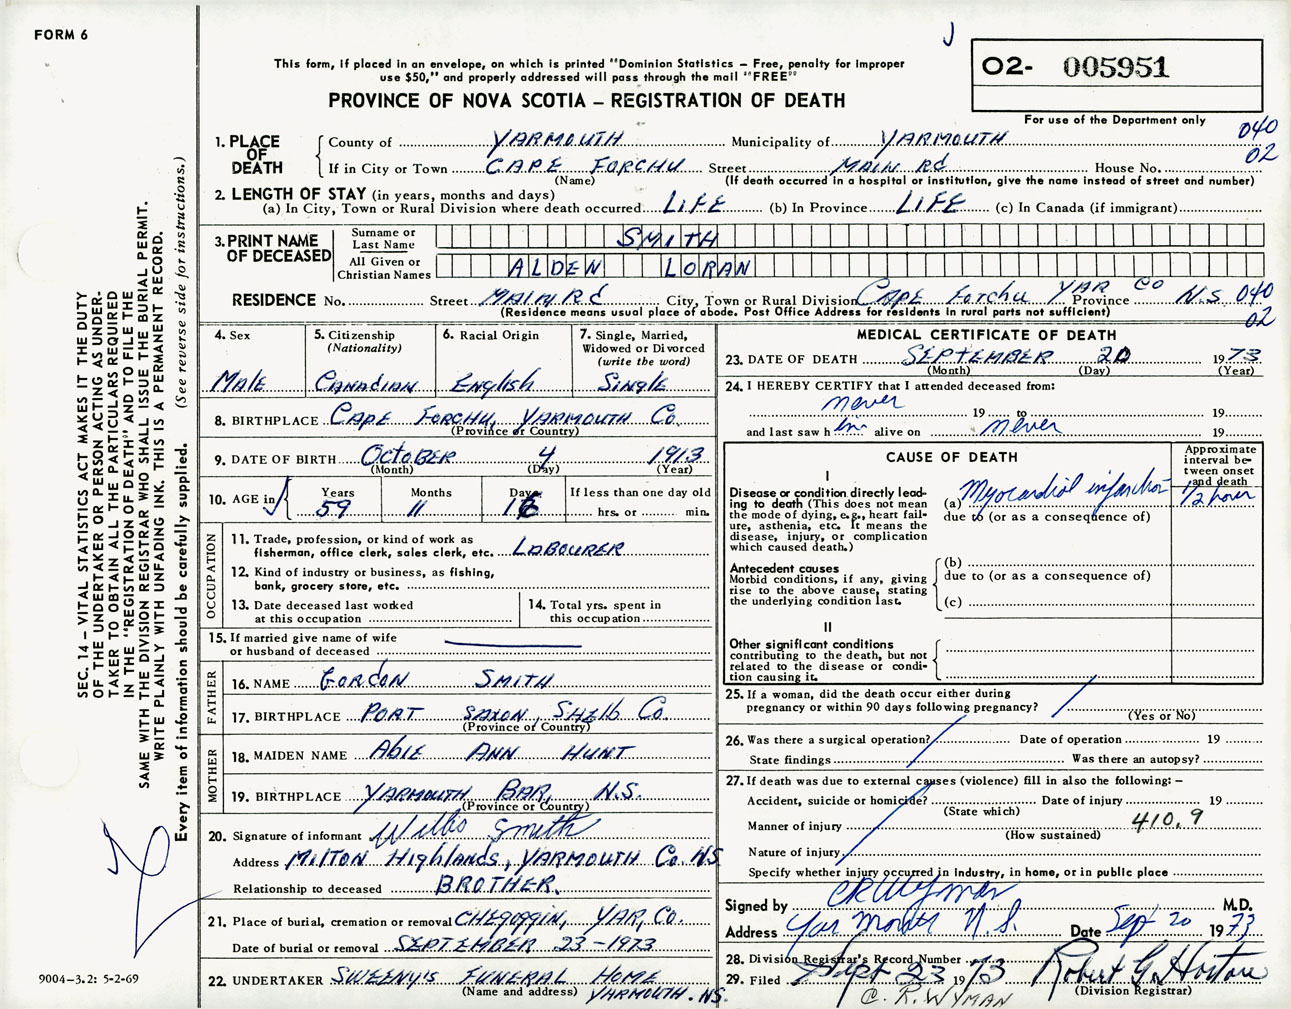 FORM 6
J
This form, if placed in an envelope, on which is printed "Dominion Statistics – Free, penalty for improper
use $50," and properly addressed will pass through the mail "FREE"
PROVINCE OF NOVA SCOTIA – REGISTRATION OF DEATH
02- 005951
For use of the Department only
1. PLACE OF DEATH
County of YARMOUTH Municipality of YARMOUTH 040
If in City or Town CAPE FORCHU Street MAIN Rd House No. 02
(Name) (If death occurred in a hospital or institution, give the name instead of street and number)
2. LENGTH OF STAY (in years, months and days)
(a) In City, Town or Rural Division where death occurred LIFE (b) In Province LIFE (c) In Canada (if immigrant)
3. PRINT NAME OF DECEASED
Surname or Last Name SMITH
All Given or Christian Names ALDEN LORAN
RESIDENCE No. Street MAIN Rd City, Town or Rural Division Cape Forchu YAR Co Province N.S. 040
(Residence means usual place of abode. Post Office Address for residents in rural parts not sufficient) 02
4. Sex
Male
5. Citizenship
(Nationality)
Canadian
6. Racial Origin
English
7. Single, Married,
Widowed or Divorced
(write the word)
Single
8. BIRTHPLACE CAPE FORCHU, YARMOUTH Co.
(Province or Country)
9. DATE OF BIRTH October 4 1913
(Month) (Day) (Year)
10. AGE in
Years Months Days If less than one day old
59 11 16 hrs. or min.
OCCUPATION
11. Trade, profession, or kind of work as
fisherman, office clerk, sales clerk, etc. LABOURER
12. Kind of industry or business, as fishing,
bank, grocery store, etc.
13. Date deceased last worked
at this occupation
14. Total yrs. spent in
this occupation
15. If married give name of wife
or husband of deceased
FATHER
16. NAME GORDON SMITH
17. BIRTHPLACE PORT SAXON, Shelb Co
(Province or Country)
MOTHER
18. MAIDEN NAME Abie ANN HUNT
19. BIRTHPLACE YARMOUTH BAR, N.S.
(Province or Country)
20. Signature of informant Willis Smith
Address Milton Highlands, YARMOUTH Co. NS
Relationship to deceased BROTHER.
21. Place of burial, cremation or removal CHEGOGGIN, YAR, Co.
Date of burial or removal SEPTEMBER 23-1973
22. UNDERTAKER SWEENY'S FUNERAL HOME
(Name and address) YARMOUTH. NS.
MEDICAL CERTIFICATE OF DEATH
23. DATE OF DEATH SEPTEMBER 20 1973
(Month) (Day) (Year)
24. I HEREBY CERTIFY that I attended deceased from:
never 19 to 19
and last saw h im alive on never 19
CAUSE OF DEATH
Approximate
interval be-
tween onset
and death
I
Disease or condition directly lead-
ing to death (This does not
mean the mode of dying, e.g., heart fail-
ure, asthenia, etc. It means the
disease, injury, or complication
which caused death.)
(a) Myocardial infarction 1/2 hour
due to (or as a consequence of)
Antecedent causes
Morbid conditions, if any, giving
rise to the above cause, stating
the underlying condition last.
(b)
due to (or as a consequence of)
(c)
II
Other significant conditions
contributing to the death, but not
related to the disease or condi-
tion causing it.
25. If a woman, did the death occur either during
pregnancy or within 90 days following pregnancy?
(Yes or No)
26. Was there a surgical operation? Date of operation 19
State findings Was there an autopsy?
27. If death was due to external causes (violence) fill in also the following: –
Accident, suicide or homicide? Date of injury 19
(State which)
Manner of injury 410.9
(How sustained)
Nature of injury
Specify whether injury occurred in industry, in home, or in public place
Signed by CR Wyman M.D.
Address Yarmouth N.S. Date Sep 20 1973
28. Division Registrar's Record Number
29. Filed Sept 23 1973 Robert G. Horton
(Division Registrar)
C. R. WYMAN
SEC. 14 – VITAL STATISTICS ACT MAKES IT THE DUTY
OF THE UNDERTAKER OR PERSON ACTING AS UNDER-
TAKER TO OBTAIN ALL THE PARTICULARS REQUIRED
IN THE "REGISTRATION OF DEATH" AND TO FILE THE
SAME WITH THE DIVISION REGISTRAR WHO SHALL ISSUE THE BURIAL PERMIT.
WRITE PLAINLY WITH UNFADING INK. THIS IS A PERMANENT RECORD.
Every item of information should be carefully supplied. (See reverse side for instructions.)
9004-3.2: 5-2-69